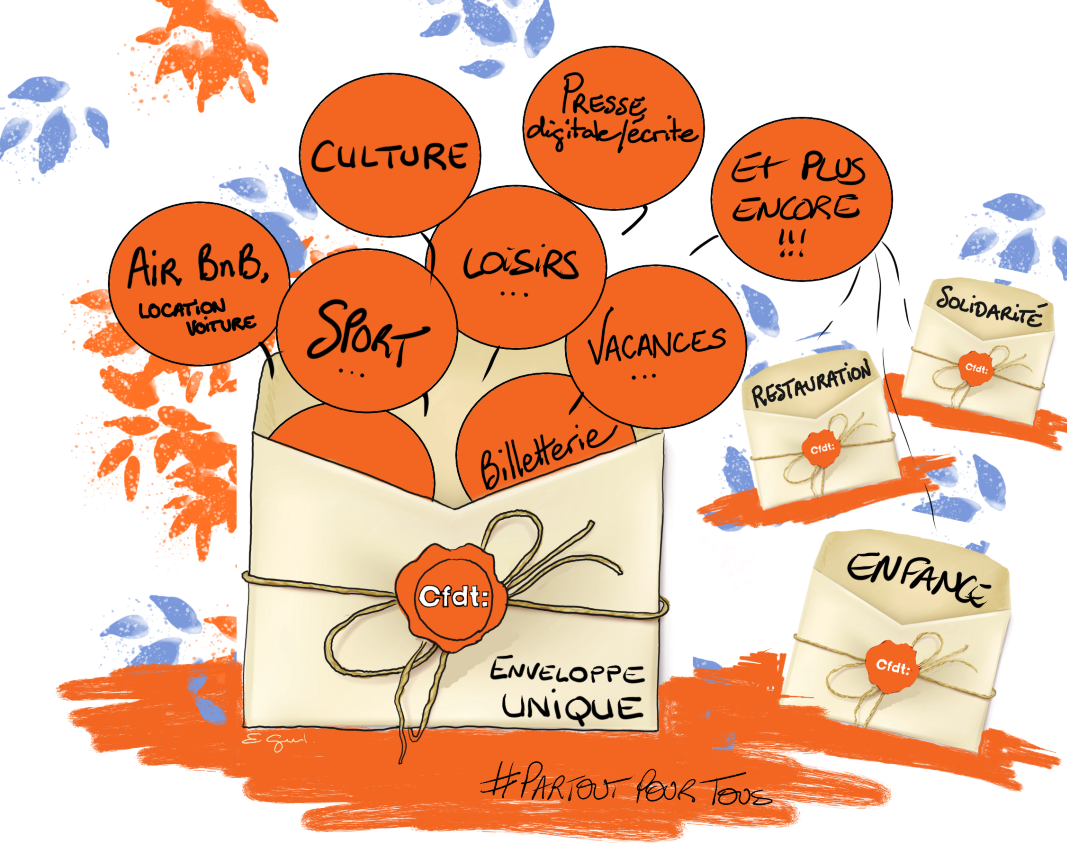 PRESSE
digitale/écrite
CULTURE
ET PLUS
ENCORE
!!!
AIR BnB,
LOCATION
VOITURE
LOISIRS
...
SPORT
...
VACANCES
...
SOLIDARITÉ
Cfdt:
RESTAURATION
Cfdt:
Billetterie
ENFANCE
Cfdt:
Cfdt:
ENVELOPPE
UNIQUE
#PARTOUT POUR TOUS